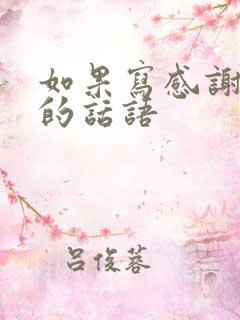 如果寫感謝
的話語
呂俊蓉